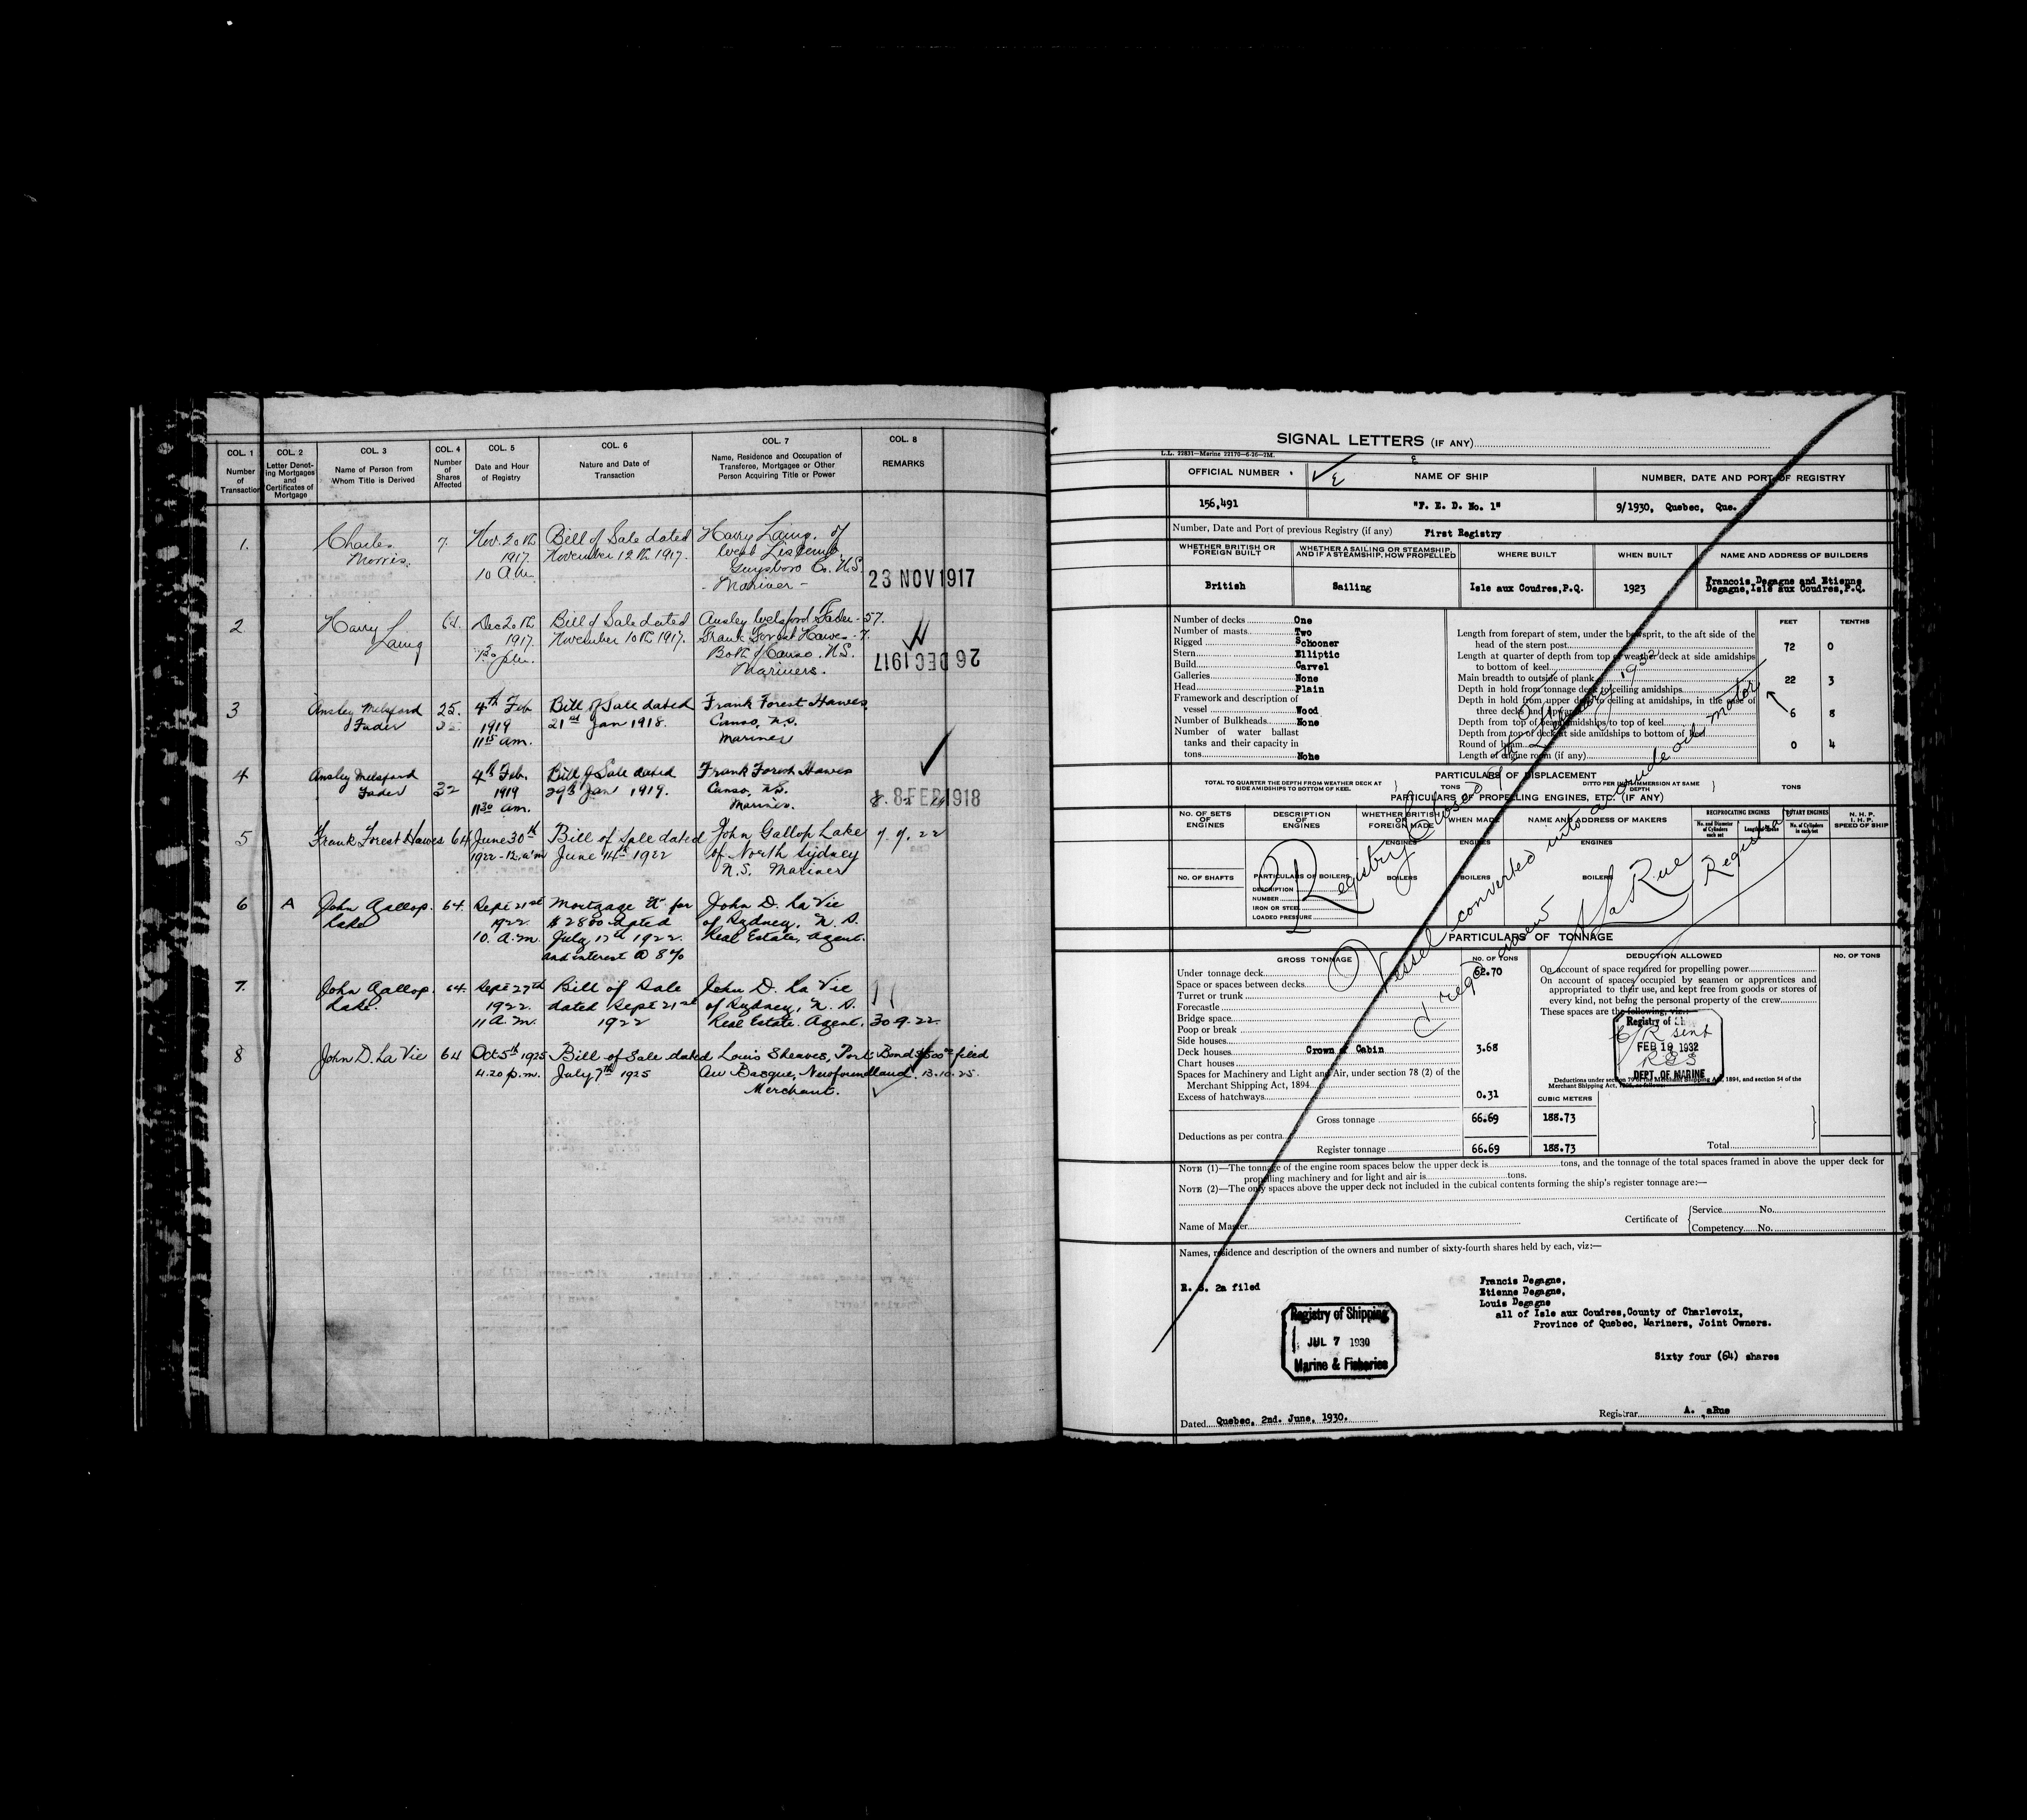 COL. 1
Number
of
Transaction
COL. 2
Letter Denot-
ing Mortgages
and
Certificates of
Mortgage
COL. 3
Name of Person from
Whom Title is Derived
COL. 4
Number
of
Shares
Affected
COL. 5
Date and Hour
of Registry
COL. 6
Nature and Date of
Transaction
COL. 7
Name, Residence and Occupation of
Transferee, Mortgagee or Other
Person Acquiring Title or Power
COL. 8
REMARKS
1.
Charles
Morris.
7.
Nov. 20th
1917.
10 A.m.
Bill of Sale dated
November 12th 1917.
Harry Laing. of
West
Guysboro Co. N.S.
Mariner -
23 NOV 1917
2
Harry
Laing
64.
Dec 20th
1917.
Bill of Sale dated
November 10th 1917.
Ansley Welsford Fader - 57.
Frank Forest Hawes - 7.
Both of Canso. N.S.
Mariners.
26 DEC 1917
3
Ansley Melsford
Fader
25.
32
4th Feb
1919
11 15 am.
Bill of Sale dated
21st Jan 1918.
Frank Forest Hawes
Canso, N.S.
Mariner
4
Ansley Melsford
Fader
32
4th Feb.
1919
11 30 am.
Bill of Sale dated
29th Jan 1919.
Frank Forest Hawes
Canso, N.S.
Mariner.
8 FEB 1918
5
Frank Forest Hawes
64
June 30th
1922 - 12. a.m
Bill of Sale dated
June 14th 1922
John Gallop Lake
of North Sydney
N.S. Mariner
7. 7. 22
6
A
John Gallop.
Lake
64.
Sept 21st
1922.
10. A.m.
Mortgage "A" for
$2800 dated
July 17th 1922.
and interest @ 8%
John D. La Vie
of Sydney, N. S.
Real Estate, Agent.
7.
John Gallop.
Lake.
64.
Sept 27th
1922.
11 A.m.
Bill of Sale
dated Sept 21st
1922
John D. La Vie
of Sydney, N. S.
Real Estate. Agent.
30.9.22
8
John D. La Vie
64
Oct 5th 1925
4.20 p.m.
Bill of Sale dated
July 7th 1925
Louis Sheaves, Port
Au Basque, Newfoundland.
Merchant.
Bond $500 00 filed
13.10.25.
SIGNAL LETTERS (IF ANY)
L.L. 22831—Marine 22170—6-26—2M.
OFFICIAL NUMBER
NAME OF SHIP
NUMBER, DATE AND PORT OF REGISTRY
156,491
"F. E. D. No. 1"
9/1930, Quebec, Que.
Number, Date and Port of previous Registry (if any)
First Registry
WHETHER BRITISH OR
FOREIGN BUILT
WHETHER A SAILING OR STEAMSHIP,
AND IF A STEAMSHIP, HOW PROPELLED
WHERE BUILT
WHEN BUILT
NAME AND ADDRESS OF BUILDERS
British
Sailing
Isle aux Coudres,P.Q.
1923
Francois Degagne and Etienne
Degagne,Isle aux Coudres,P.Q.
Number of decks One
Number of masts Two
Rigged Schooner
Stern Elliptic
Build Carvel
Galleries None
Head Plain
Framework and description of
vessel Wood
Number of Bulkheads None
Number of water ballast
tanks and their capacity in
tons None
FEET
TENTHS
Length from forepart of stem, under the bowsprit, to the aft side of the
head of the stern post 72 0
Length at quarter of depth from top of weather deck at side amidships
to bottom of keel
Main breadth to outside of plank 22 3
Depth in hold from tonnage deck to ceiling amidships
Depth in hold from upper deck to ceiling at amidships, in the case of
three decks and upwards 6 8
Depth from top of beam amidships to top of keel
Depth from top of deck at side amidships to bottom of keel
Round of beam 0 4
Length of engine room (if any)
PARTICULARS OF DISPLACEMENT
TOTAL TO QUARTER THE DEPTH FROM WEATHER DECK AT
SIDE AMIDSHIPS TO BOTTOM OF KEEL
TONS
DITTO PER INCH IMMERSION AT SAME
DEPTH
TONS
PARTICULARS OF PROPELLING ENGINES, ETC. (IF ANY)
NO. OF SETS
OF
ENGINES
DESCRIPTION
OF
ENGINES
WHETHER BRITISH
OR
FOREIGN MADE
WHEN MADE
NAME AND ADDRESS OF MAKERS
RECIPROCATING ENGINES
ROTARY ENGINES
No. and Diameter
of Cylinders
each set
Length of Stroke
No. of Cylinders
in each set
N. H. P.
I. H. P.
SPEED OF SHIP
ENGINES
ENGINES
ENGINES
NO. OF SHAFTS
PARTICULARS OF BOILERS
DESCRIPTION
NUMBER
IRON OR STEEL
LOADED PRESSURE
BOILERS
BOILERS
BOILERS
Registry Closed February 1932
Vessel converted into a crude oil motor
& reg'd anew
A LaRue
Registrar
PARTICULARS OF TONNAGE
GROSS TONNAGE
NO. OF TONS
DEDUCTION ALLOWED
NO. OF TONS
Under tonnage deck 62.70
Space or spaces between decks
Turret or trunk
Forecastle
Bridge space
Poop or break
Side houses
Deck houses Crown of Cabin 3.68
Chart houses
Spaces for Machinery and Light and Air, under section 78 (2) of the
Merchant Shipping Act, 1894
Excess of hatchways 0.31
Gross tonnage 66.69 188.73
Deductions as per contra
Register tonnage 66.69 188.73
CUBIC METERS
On account of space required for propelling power
On account of spaces occupied by seamen or apprentices and
appropriated to their use, and kept free from goods or stores of
every kind, not being the personal property of the crew
These spaces are the following, viz:—
Registry of
C/R sent
FEB 19 1932
DEPT. OF MARINE
Deductions under section 79 of the Merchant Shipping Act, 1894, and section 54 of the
Total
NOTE (1)—The tonnage of the engine room spaces below the upper deck is tons, and the tonnage of the total spaces framed in above the upper deck for
propelling machinery and for light and air is tons.
NOTE (2)—The only spaces above the upper deck not included in the cubical contents forming the ship's register tonnage are:—
Name of Master
Certificate of
Service No.
Competency No.
Names, residence and description of the owners and number of sixty-fourth shares held by each, viz:—
R. S. 2a filed
Francis Degagne,
Etienne Degagne,
Louis Degagne
all of Isle aux Coudres,County of Charlevoix,
Province of Quebec, Mariners, Joint Owners.
Sixty four (64) shares
Registry of Shipping
JUL 7 1930
Marine & Fisheries
Dated Quebec, 2nd. June, 1930.
Registrar A. aRue